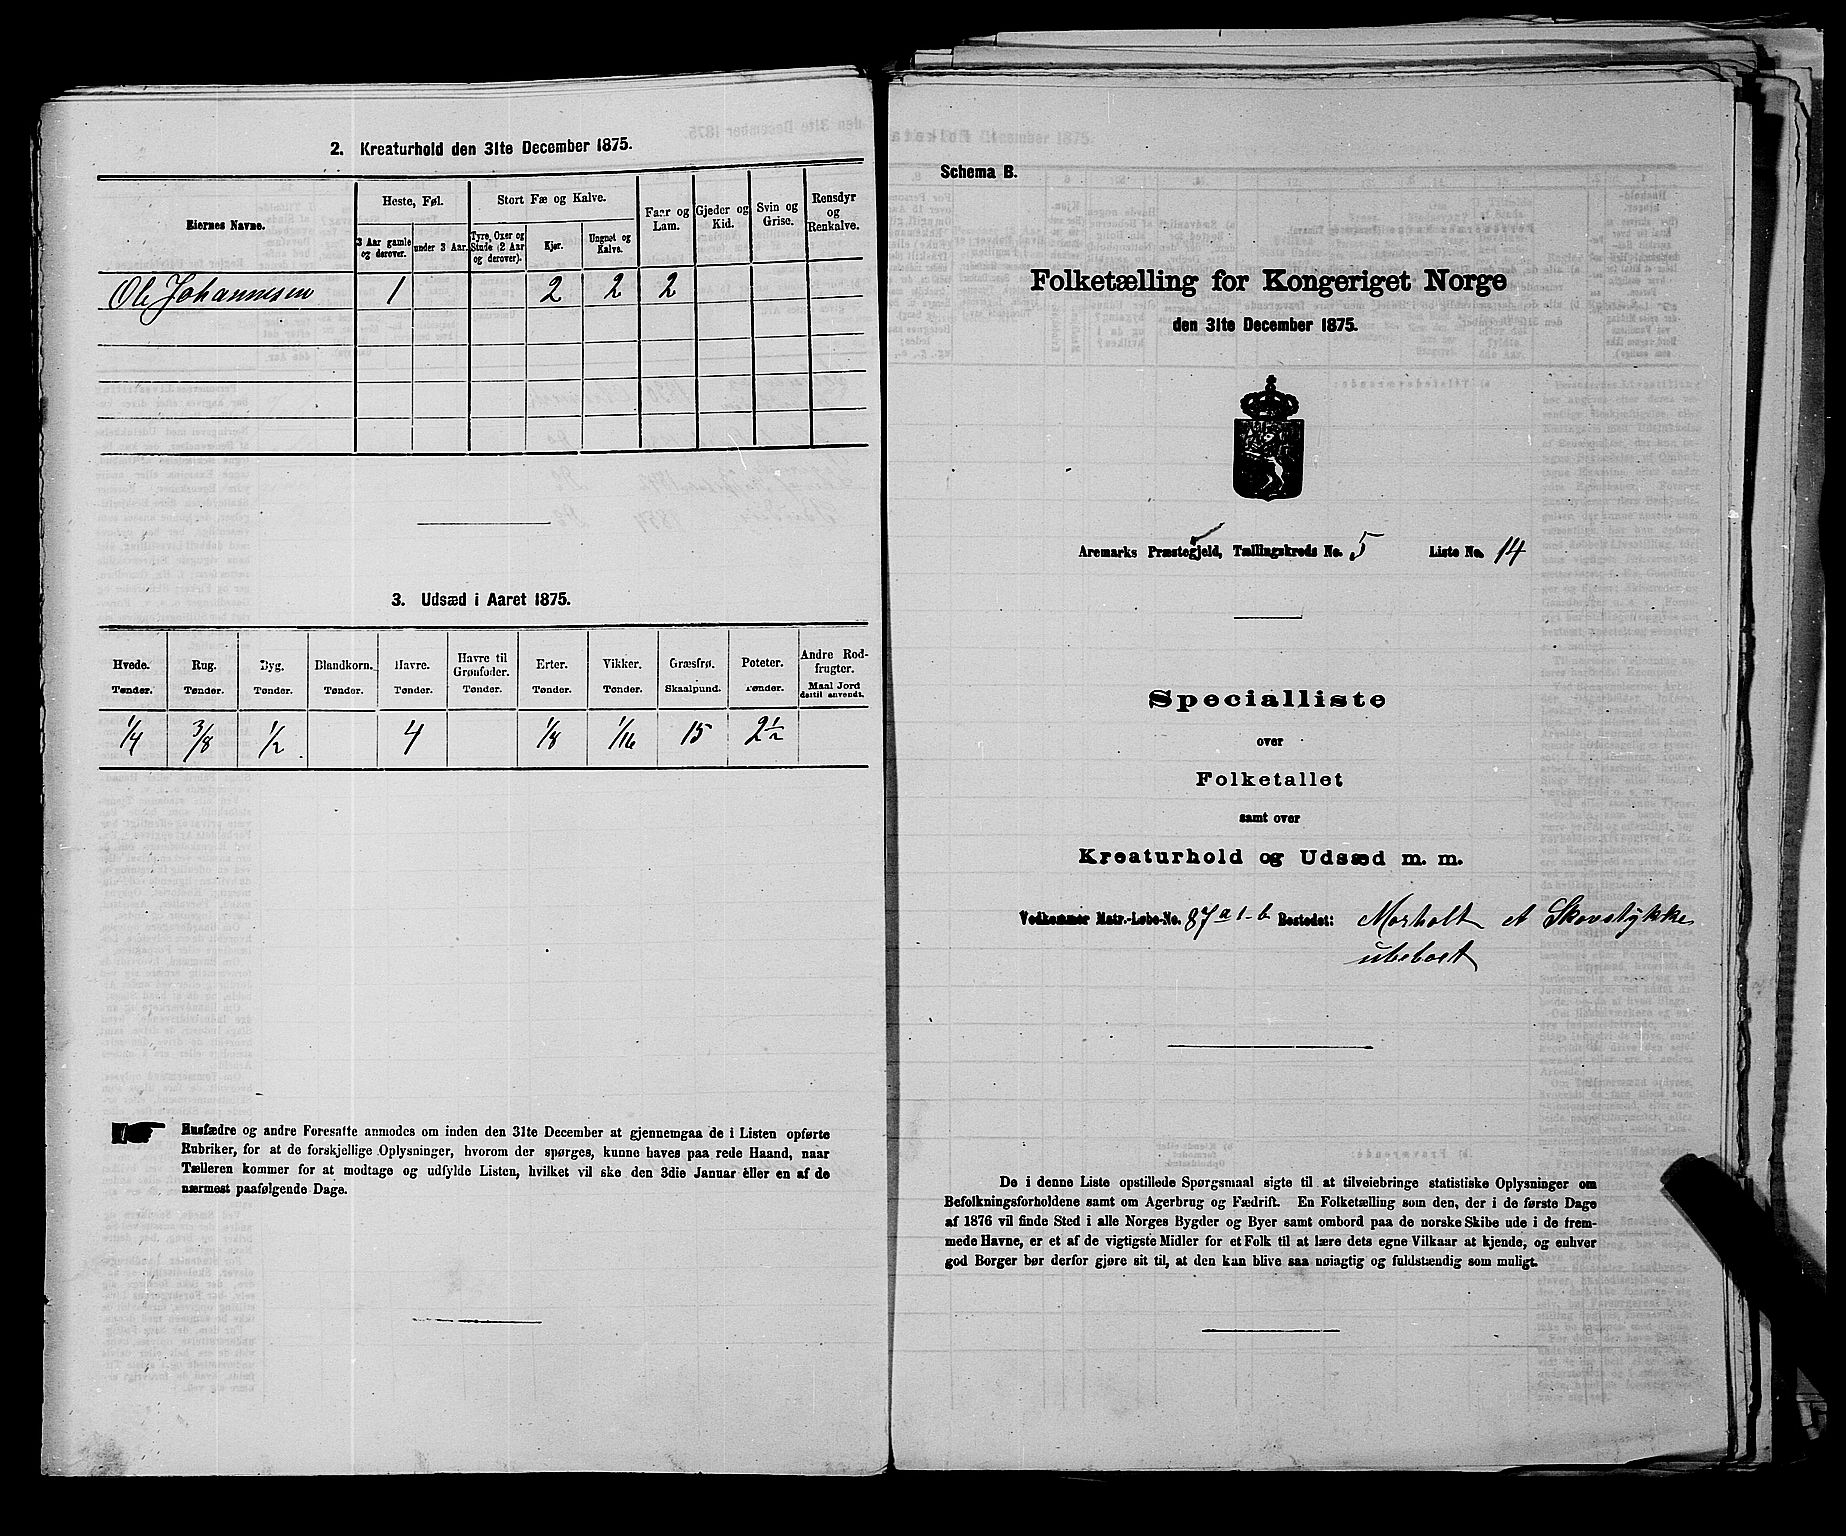 2. Kreaturhold den 31te December 1875.
Eiernes Navne.
Heste, Føl.
Stort Fæ og Kalve.
Faar og Lam.
Gjeder og Kid.
Svin og Grise.
Rensdyr og Renkalve.
3 Aar gamle og derover.
under 3 Aar.
Tyre, Oxer og Stude (2 Aar og derover).
Kjør.
Ungnøt og Kalve.
Ole Johannesen 1 2 2 2
3. Udsæd i Aaret 1875.
Hvede. Rug. Byg. Blandkorn. Havre. Havre til Grønfoder. Erter. Vikker. Græsfrø. Poteter. Andre Rodfrugter.
Tønder. Tønder. Tønder. Tønder. Tønder. Tønder. Tønder. Tønder. Skaalpund. Tønder. Maal Jord dertil anvendt.
1/4 3/8 1/2 4 1/8 1/16 15 2 1/2
Husfædre og andre Foresatte anmodes om inden den 31te December at gjennemgaa de i Listen opførte
Rubriker, for at de forskjellige Oplysninger, hvorom der spørges, kunne haves paa rede Haand, naar
Tælleren kommer for at modtage og udfylde Listen, hvilket vil ske den 3die Januar eller en af de
nærmest paafølgende Dage.
Schema B.
Folketælling for Kongeriget Norge
den 31te December 1875.
Aremarks Præstegjeld, Tællingskreds No. 5 Liste No. 14
Specialliste
over
Folketallet
samt over
Kreaturhold og Udsæd m. m.
Vedkommer Matr.-Løbe-No. 87 a 1-b Bostedet: Morholt et Skovstykke
ubeboet
De i denne Liste opstillede Spørgsmaal sigte til at tilveiebringe statistiske Oplysninger om
Befolkningsforholdene samt om Agerbrug og Fædrift. En Folketælling som den, der i de første Dage
af 1876 vil finde Sted i alle Norges Bygder og Byer samt ombord paa de norske Skibe ude i de frem-
mede Havne, er et af de vigtigste Midler for et Folk til at lære dets egne Vilkaar at kjende, og enhver
god Borger bør derfor gjøre sit til, at den kan blive saa nøiagtig og fuldstændig som muligt.